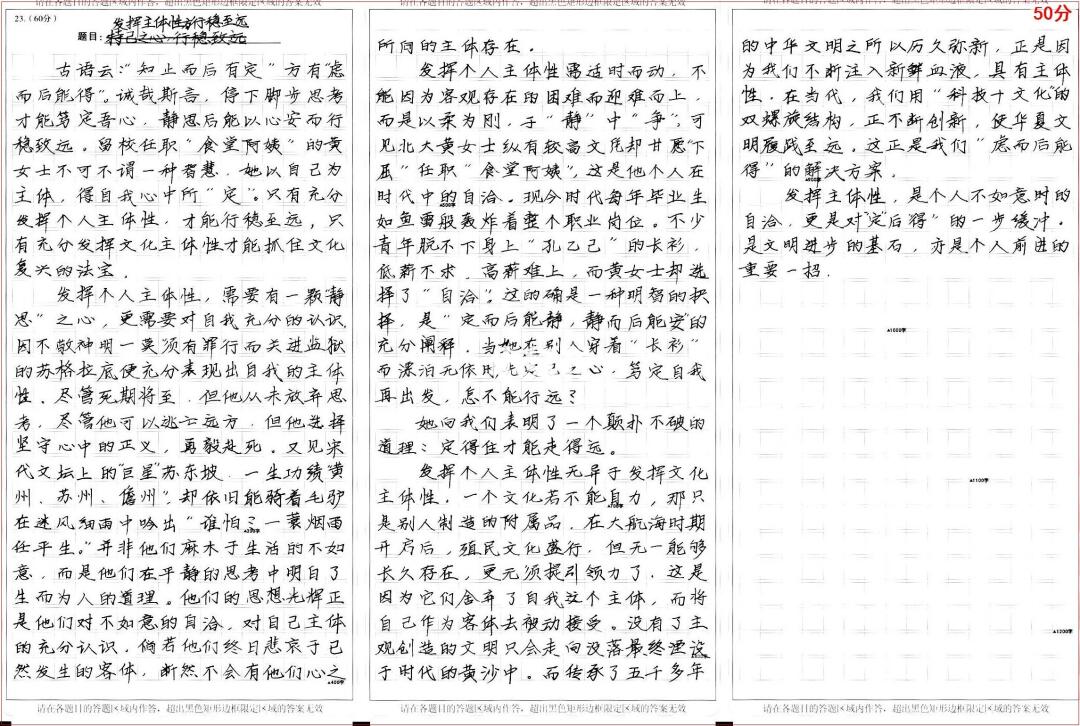 请在各题目的答题区域内作答，超出黑色矩形边框限定区域的答案无效
请在各题目的答题区域内作答，超出黑色矩形边框限定区域的答案无效
50分
23.（60分）
发挥主体性 行稳至远
题目：持己之心 行稳致远
古语云：“知止而后有定”方有“虑
而后能得”。诚哉斯言，停下脚步思考
才能笃定吾心，静思后能以心安而行
稳致远。留校任职“食堂阿姨”的黄
女士不可不谓一种智慧。她以自己为
主体，得自我心中所“定”。只有充分
发挥个人主体性，才能行稳至远，只
有充分发挥文化主体性才能抓住文化
复兴的法宝。
发挥个人主体性，需要有一颗“静
思”之心，更需要对自我充分的认识，
因不敬神明一莫须有罪行而关进监狱
的苏格拉底便充分表现出自我的主体
性。尽管死期将至，但他从未放弃思
考，尽管他可以逃亡远方，但他选择
坚守心中的正义，勇毅赴死。又见宋
代文坛上的“巨星”苏东坡，一生功绩“黄
州、苏州、儋州”，却依旧能骑着毛驴
在迷风细雨中吟出“谁怕？一蓑烟雨
任平生。”并非他们麻木于生活的不如
意，而是他们在平静的思考中明白了
生而为人的道理。他们的思想光辉正
是他们对不如意的自洽，对自己主体
的充分认识，倘若他们终日悲哀于已
然发生的客体，断然不会有他们心之
▲400字
所向的主体存在。
发挥个人主体性需适时而动，不
能因为客观存在的困难而迎难而上，
而是以柔为刚，于“静”中“争”，可
见北大黄女士纵有较高文凭却甘愿“下
屈”任职“食堂阿姨”，这是他个人在
时代中的自洽。现今时代每年毕业生
如鱼雷般轰炸着整个职业岗位。不少
青年脱不下身上“孔乙己”的长衫，
低薪不求，高薪难上，而黄女士却选
择了“自洽”。这的确是一种明智的抉
择，是“定而后能静，静而后能安”的
充分阐释，当她在别人穿着“长衫”
而漂泊无依时，己之心，笃定自我
再出发，怎不能行远？
她向我们表明了一个颠扑不破的
道理：定得住才能走得远。
发挥个人主体性无异于发挥文化
主体性，一个文化若不能自力，那只
是别人制造的附属品，在大航海时期
开启后，殖民文化盛行，但无一能够
长久存在，更无须提引领力了，这是
因为它们舍弃了自我这个主体，而将
自己作为客体去被动接受。没有了主
观创造的文明只会走向没落最终湮没
于时代的黄沙中。而传承了五千多年
的中华文明之所以历久弥新，正是因
为我们不断注入新鲜血液，具有主体
性，在当代，我们用“科技+文化”的
双螺旋结构，正不断创新，使华夏文
明履践至远。这正是我们“虑而后能
得”的解决方案。
发挥主体性，是个人不如意时的
自洽，更是对“定”后得”的一步缓冲。
是文明进步的基石，亦是个人前进的
重要一招。
▲1000字
▲1100字
▲1200字
请在各题目的答题区域内作答，超出黑色矩形边框限定区域的答案无效
请在各题目的答题区域内作答，超出黑色矩形边框限定区域的答案无效
请在各题目的答题区域内作答，超出黑色矩形边框限定区域的答案无效